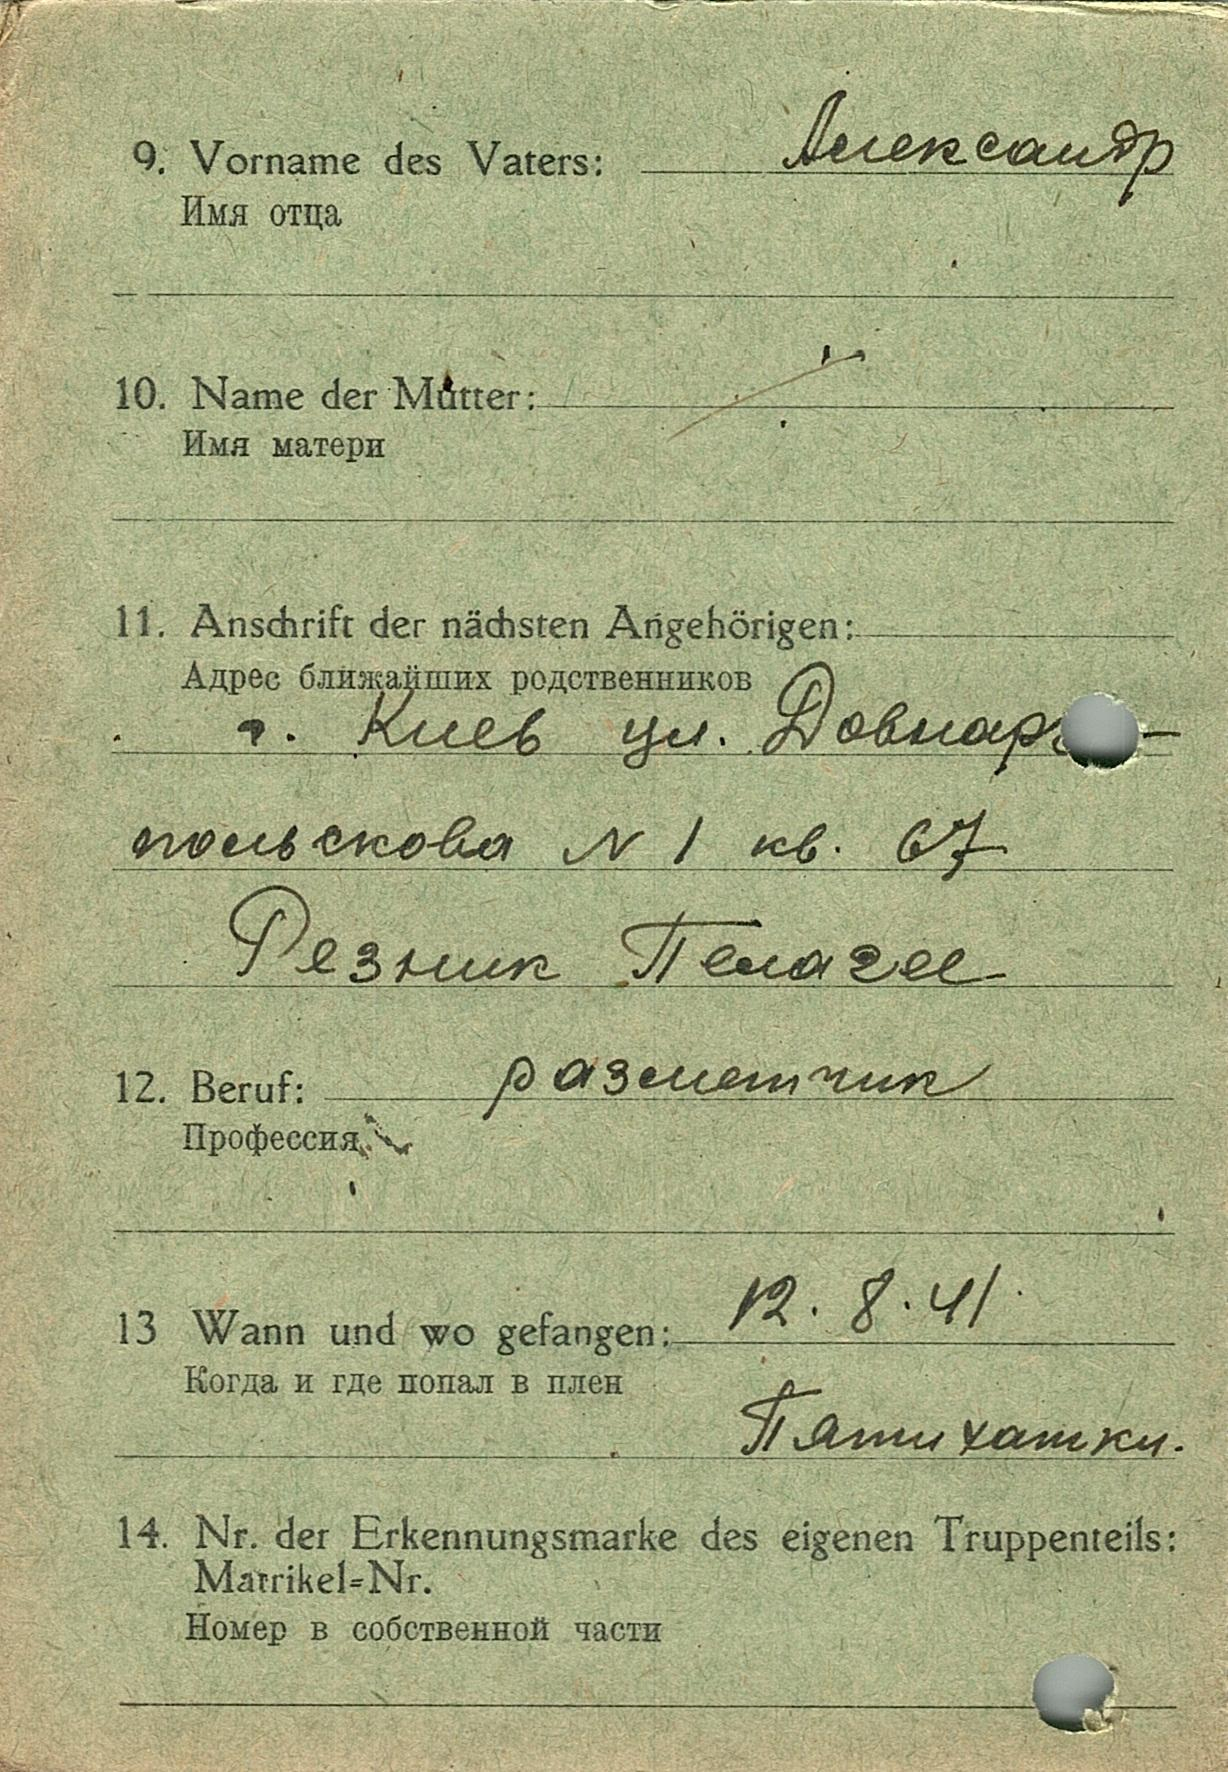 9. Vorname des Vaters: Александр
Имя отца
10. Name der Mutter:
Имя матери
11. Anschrift der nächsten Angehörigen:
Адрес ближайших родственников
г. Киев ул. Довнар-
польскова N 1 кв. 67
Резник Пелагее
12. Beruf: разметчик
Профессия
13 Wann und wo gefangen: 12. 8. 41
Когда и где попал в плен
Пятихатки.
14. Nr. der Erkennungsmarke des eigenen Truppenteils:
Matrikel=Nr.
Номер в собственной части